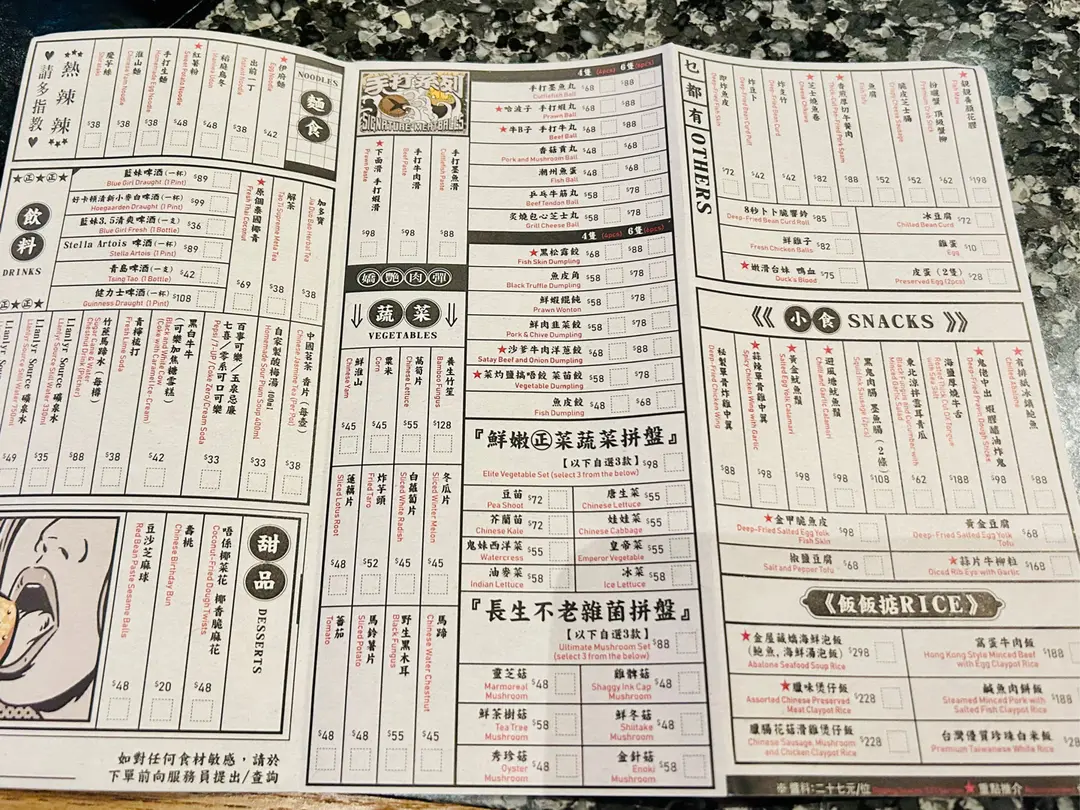 熱辣辣
請多指教
NOODLES
麵食
★伊府麵
Egg Noodle
$42
出前一丁
Instant Noodle
$38
稻庭烏冬
$48
★紅薯粉
Sweet Potato Noodle
$48
手打生麵
Homemade Egg Noodle
$48
淮山麵
Chinese Yam Noodle
$38
蒟芋絲
Shirataki
$38
★正★正★
飲料
DRINKS
藍妹啤酒(一杯)
Blue Girl Draught (1 Pint)
$89
好卡頓清新小麥白啤酒(一杯)
Hoegaarden Draught (1 Pint)
$99
藍妹3.5清爽啤酒(一支)
Blue Girl Fresh (1 Bottle)
$36
Stella Artois 啤酒(一杯)
Stella Artois (1 Pint)
$89
青島啤酒(一支)
Tsing Tao (1 Bottle)
$42
健力士啤酒(一杯)
Guinness Draught (1 Pint)
$108
加多寶
Jia Duo Bao Herbal Tea
$38
解茶
Tao Ti Supreme Meta Tea
$38
★原個泰國椰青
Fresh Thai Coconut
$69
中國茗茶 香片(每壺)
Chinese Jasmine Tea (Per Pot)
$38
自家製酸梅湯 400ml
Homemade Sour Plum Soup 400ml
$33
百事可樂/玉泉忌廉
七喜/零系可口可樂
Pepsi/7-UP/Coke Zero/Cream Soda
$33
黑白牛牛
(可樂加焦糖雪糕)
Black and White Cow
(Coke with Caramel Ice-Cream)
$42
青檸梳打
Fresh Lime Soda
$38
竹蔗馬蹄水(每樽)
Sugar Cane & Water
Chestnut Drink (Pitcher)
$88
Llanlyr Source 礦泉水
Llanlyr Source Still Water 330ml
$35
Llanlyr Source 礦泉水
Llanlyr Source Still Water 750ml
$49
甜品
DESSERTS
唔係椰菜花 椰香脆麻花
Coconut-Fried Dough Twists
$48
壽桃
Chinese Birthday Bun
$20
豆沙芝麻球
Red Bean Paste Sesame Balls
$48
如對任何食材敏感，請於
下單前向服務員提出/查詢
手打系列
SIGNATURE MEATBALLS
手打墨魚滑
Cuttlefish Paste
$88
手打牛肉滑
Beef Paste
$98
★下面滑 手打蝦滑
Prawn Paste
$98
嬌艷肉彈
蔬菜
VEGETABLES
養生竹笙
Bamboo Fungus
$128
萵筍片
Chinese Lettuce
$55
粟米
Corn
$45
鮮淮山
Chinese Yam
$45
冬瓜片
Sliced Winter Melon
$45
白蘿蔔片
Sliced White Radish
$45
炸芋頭
Fried Taro
$52
蓮藕片
Sliced Lotus Root
$48
馬蹄
Chinese Water Chestnut
$45
野生黑木耳
Black Fungus
$55
馬鈴薯片
Sliced Potato
$48
蕃茄
Tomato
$48
4隻 (4pcs) 6隻 (6pcs)
手打墨魚丸 $68 $88
Cuttlefish Ball
★哈波子 手打蝦丸 $68 $88
Prawn Ball
★牛B子 手打牛丸 $68 $88
Beef Ball
香菇貢丸 $48 $68
Pork and Mushroom Ball
潮州魚蛋 $48 $68
Fish Ball
乒乓牛筋丸 $58 $78
Beef Tendon Ball
炙燒包心芝士丸 $58 $78
Grill Cheese Ball
4隻 (4pcs) 6隻 (6pcs)
★黑松露餃 $68 $88
Fish Skin Dumpling
魚皮角 $58 $78
Black Truffle Dumpling
鮮蝦餛飩 $58 $78
Prawn Wonton
鮮肉韭菜餃 $58 $78
Pork & Chive Dumpling
★沙爹牛肉洋蔥餃 $68 $88
Satay Beef and Onion Dumpling
★菜灼鹽搞唔餃 菜苗餃 $58 $78
Vegetable Dumpling
魚皮餃 $48 $68
Fish Dumpling
『鮮嫩㊣菜蔬菜拼盤』
【以下自選3款】 $98
Elite Vegetable Set (select 3 from the below)
豆苗 $72
Pea Shoot
唐生菜 $55
Chinese Lettuce
芥蘭苗 $72
Chinese Kale
娃娃菜 $55
Chinese Cabbage
鬼妹西洋菜 $55
Watercress
皇帝菜 $55
Emperor Vegetable
油麥菜 $58
Indian Lettuce
冰菜 $58
Ice Lettuce
『長生不老雜菌拼盤』
【以下自選3款】 $88
Ultimate Mushroom Set
(select 3 from the below)
靈芝菇 $48
Marmoreal
Mushroom
雞髀菇 $48
Shaggy Ink Cap
Mushroom
鮮茶樹菇 $58
Tea Tree
Mushroom
鮮冬菇 $48
Shiitake
Mushroom
秀珍菇 $48
Oyster
Mushroom
金針菇 $58
Enoki
Mushroom
乜都有 OTHERS
靚靚養顏花膠
Fish Maw
$198
粉嘟蟹 頂級蟹柳
Premium Crab Stick
$62
脆皮芝士腸
Crispy Cheese Sausage
$52
魚腐
Fish Tofu
$52
★香煎厚切午餐肉
$68
★芝士燒魚卷
$52
炸支竹
Fried Bean Curd
$42
炸豆卜
Deep-Fried Bean Curd Puff
$42
即炸魚皮
Deep-Fried Fish Skin
$72
8秒卜卜脆響鈴 $85
Deep-Fried Bean Curd Roll
冰豆腐 $72
Chilled Bean Curd
鮮雞子 $82
Fresh Chicken Balls
雞蛋 $10
Egg
★嫩滑台妹 鴨血 $75
Duck's Blood
皮蛋 (2隻) $28
Preserved Egg (2pcs)
小食 SNACKS
★有排舐冰鎮鮑
Chilled Abalone
$88
★鬼佬中出 蝦膠醋油炸鬼
Deep-Fried Prawn Dough Slices
$98
海鹽厚燒牛舌
$188
東北涼拌雲耳青瓜
Black Fungus and Cucumber with
Mashed Garlic Salad
$62
黑鬼肉腸 墨魚腸(2條)
Squid Ink Sausage (2pcs)
$108
★避風塘魷魚鬚
Chilli and Garlic Calamari
$98
★黃金魷魚鬚
Salted Egg Yolk Calamari
$98
★蒜辣單骨雞中翼
Spicy Chicken Wing with Garlic
$98
秘製單骨炸雞中翼
Deep-Fried Chicken Wing
$88
★金甲脆魚皮 $98
Deep-Fried Salted Egg Yolk
Fish Skin
黃金豆腐 $68
Deep-Fried Salted Egg Yolk
Tofu
椒鹽豆腐 $68
Salt and Pepper Tofu
★蒜片牛柳粒 $168
Diced Rib Eye with Garlic
《飯飯掂RICE》
★金屋藏嬌海鮮泡飯
(鮑魚,海鮮湯泡飯) $298
Abalone Seafood Soup Rice
窩蛋牛肉飯 $188
Hong Kong Style Minced Beef
with Egg Claypot Rice
★臘味煲仔飯 $228
Assorted Chinese Preserved
Meat Claypot Rice
鹹魚肉餅飯 $188
Steamed Minced Pork with
Salted Fish Claypot Rice
臘腸花菇滑雞煲仔飯 $228
Chinese Sausage, Mushroom
and Chicken Claypot Rice
台灣優質珍珠白米飯 $28
Premium Taiwanese White Rice
※醬料:二十七元/位
★重點推介